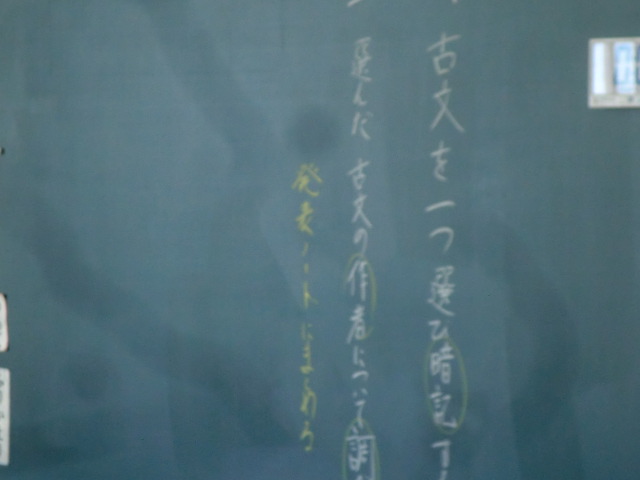 古文を一つ選び暗記す
選んだ古文の作者について調
発表ノートにまとめる